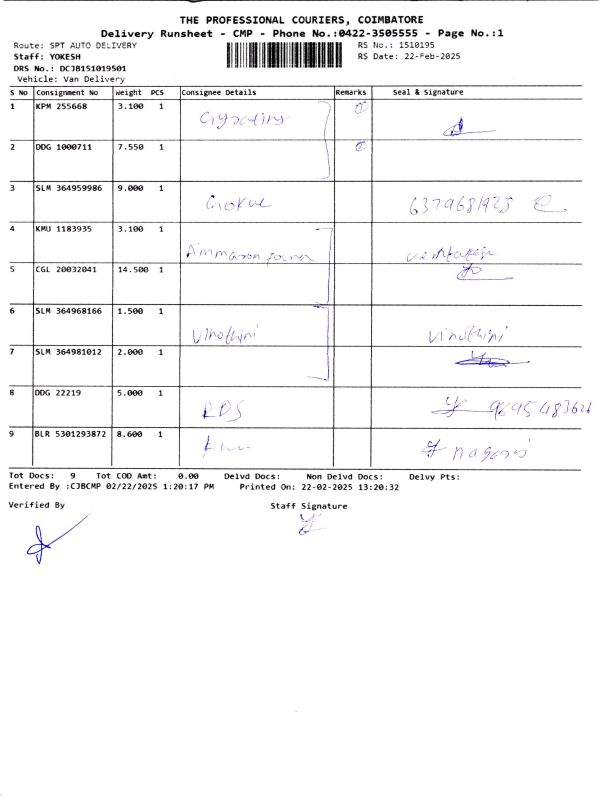 THE PROFESSIONAL COURIERS, COIMBATORE
Delivery Runsheet - CMP - Phone No.:0422-3505555 - Page No.:1
Route: SPT AUTO DELIVERY RS No.: 1510195
Staff: YOKESH RS Date: 22-Feb-2025
DRS No.: DCJB151019501
Vehicle: Van Delivery
S No Consignment No Weight PCS Consignee Details Remarks Seal & Signature
1 KPM 255668 3.100 1
2 DDG 1000711 7.550 1
3 SLM 364959986 9.000 1 6379681923
4 KMU 1183935 3.100 1
5 CGL 20032041 14.500 1
6 SLM 364968166 1.500 1 Vinothini Vinothini
7 SLM 364981012 2.000 1
8 DDG 22219 5.000 1 RDS
9 BLR 5301293872 8.600 1
Tot Docs: 9 Tot COD Amt: 0.00 Delvd Docs: Non Delvd Docs: Delvy Pts:
Entered By :CJBCMP 02/22/2025 1:20:17 PM Printed On: 22-02-2025 13:20:32
Verified By Staff Signature